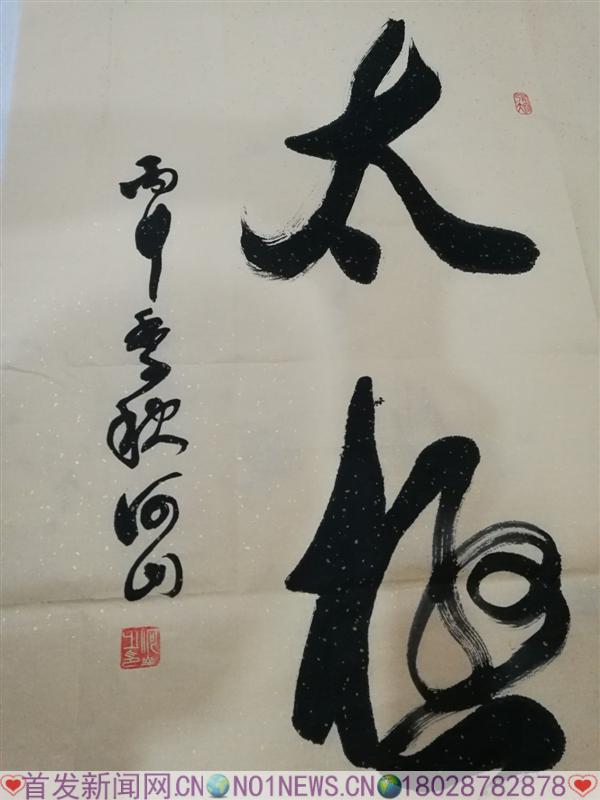 太极
丙申季秋河山
首发新闻网.CN NO1NEWS.CN 18028782878